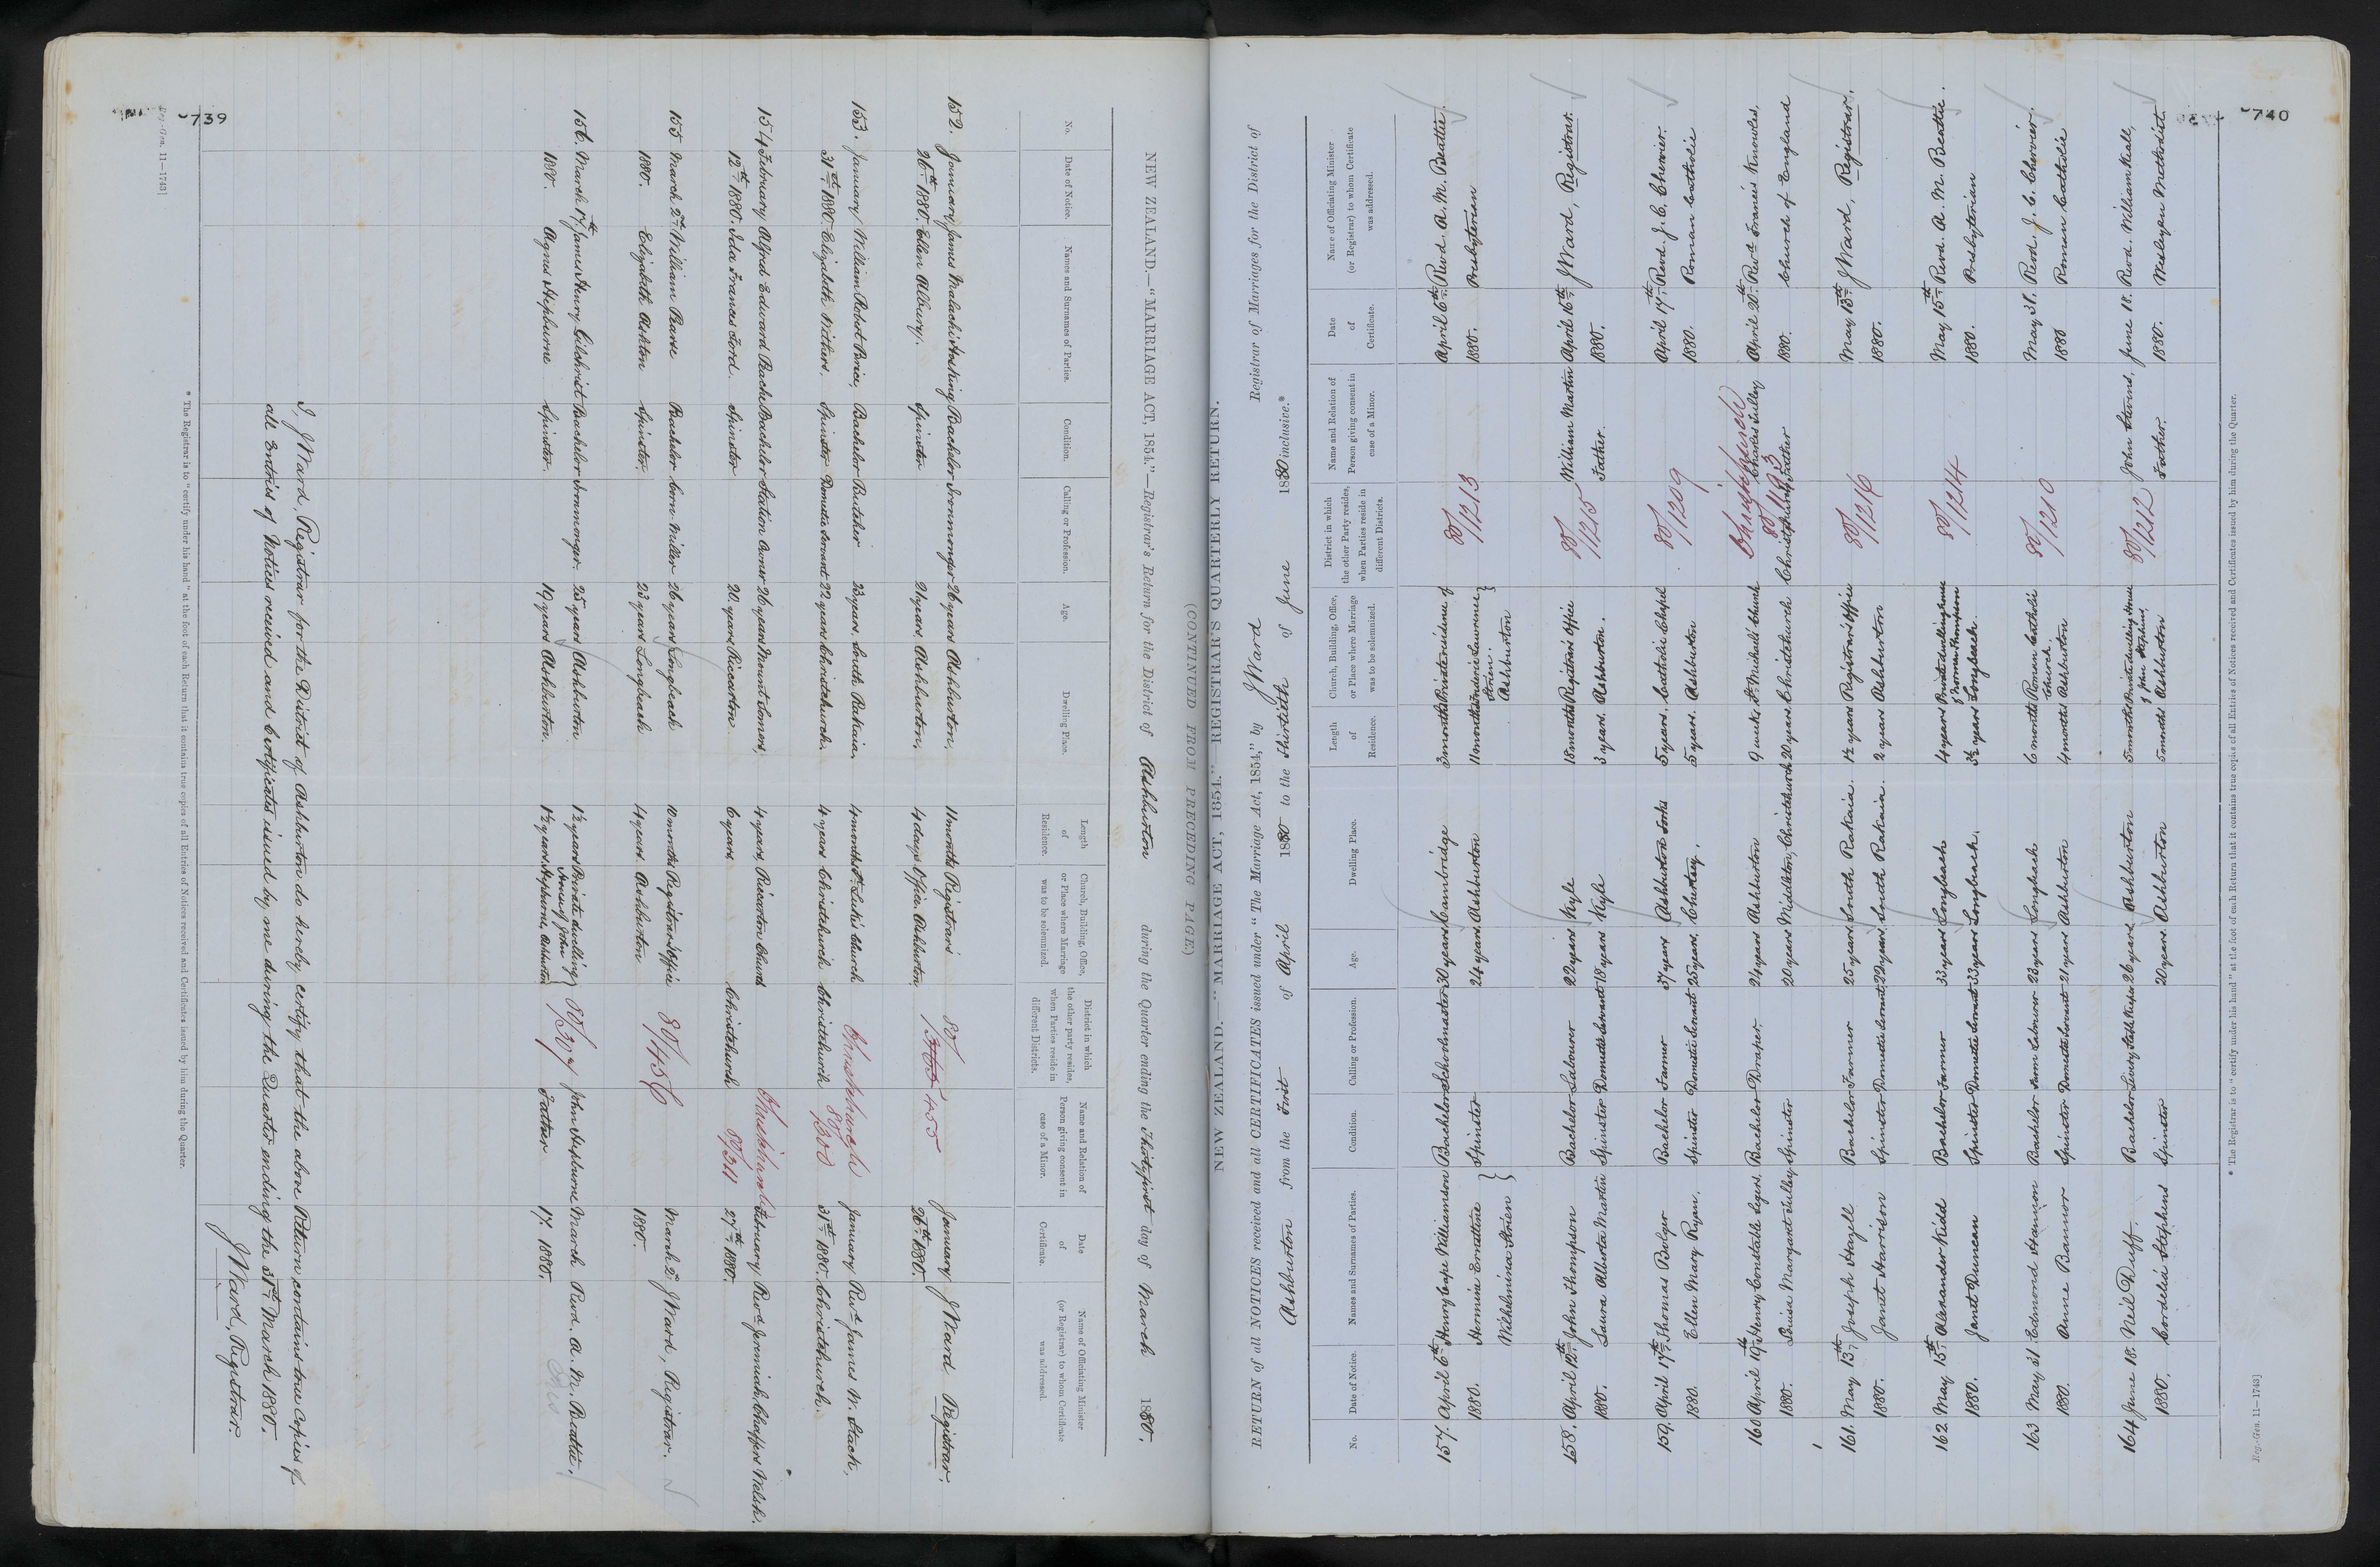 739
NEW ZEALAND.—"MARRIAGE ACT, 1854."—Registrar's Return for the District of Ashburton during the Quarter ending the Thirty first day of March 1880.
No. Date of Notice. Names and Surnames of Parties. Condition. Calling or Profession. Age. Dwelling Place. Length of Residence. Church, Building, Office, or Place where Marriage was to be solemnized. District in which the other party resides, when Parties reside in different Districts. Name and Relation of Person giving consent in case of a Minor. Date of Certificate. Name of Officiating Minister (or Registrar) to whom Certificate was addressed.
152. January James Malachi Hosking Bachelor Ironmonger 26 years Ashburton. 11 months Registrar's 80/ January J Ward Registrar.
26th 1880. Ellen Albury. Spinster 21 years. Ashburton. 4 days Office. Ashburton 455 26th 1880.
153. January William Robert Brice. Bachelor Butcher 23 years. South Rakaia. 4 months St. Luke's Church Christchurch January Revd. James W. Stack,
31st 1880. Elizabeth Withers. Spinster Domestic Servant 22 years Christchurch. 4 years Christchurch Christchurch 80/300 31st 1880. Christchurch.
154 February Alfred Edward Peache Bachelor Station Owner 26 years Mount Somers, 4 years, Riccarton Church Christchurch February Revd. Jeremiah Chaffers Welsh.
12th 1880. Ida Frances Ford. Spinster 20 years Riccarton 6 years Christchurch 80/311 27th 1880.
155 March 2nd William Pearse Bachelor born Miller 26 years Longbeach 10 months Registrar's Office 80/456 March 2nd J Ward, Registrar.
1880. Elizabeth Ashton Spinster. 23 years Longbeach 4 years. Ashburton 1880.
156. March 17th James Henry Gilchrist Bachelor Ironmonger. 25 years Ashburton 1½ years Private dwelling House of John 80/ John Hepburne March Revd. A. M. Beattie.
1880. Agnes Hepburne Spinster. 19 years Ashburton. 1½ years. Hepburne, Ashburton Father 17. 1880.
I, J Ward, Registrar for the District of Ashburton do hereby certify that the above Return contains true Copies of
all Entries of Notices received and Certificates issued by me during the Quarter ending the 31st March 1880.
J Ward, Registrar.
* The Registrar is to "certify under his hand" at the foot of each Return that it contains true copies of all Entries of Notices received and Certificates issued by him during the Quarter.
Reg.-Gen. 11—1743]
740
(CONTINUED FROM PRECEDING PAGE)
NEW ZEALAND.—"MARRIAGE ACT, 1854." REGISTRAR'S QUARTERLY RETURN.
RETURN of all NOTICES received and all CERTIFICATES issued under "The Marriage Act, 1854," by J Ward Registrar of Marriages for the District of
Ashburton from the First of April 1880 to the Thirtieth of June 1880 inclusive.*
No. Date of Notice. Names and Surnames of Parties. Condition. Calling or Profession. Age. Dwelling Place. Length of Residence. Church, Building, Office, or Place where Marriage was to be solemnized. District in which the other Party resides, when Parties reside in different Districts. Name and Relation of Person giving consent in case of a Minor. Date of Certificate. Name of Officiating Minister (or Registrar) to whom Certificate was addressed.
157. April 6th Henry Cape Williamson Bachelor Schoolmaster 30 years Cambridge 3 months Private residence of 80/1213 April 6th Revd. A. M. Beattie.
1880. Hermine Ernstine Spinster 24 years Ashburton 11 months Frederic Laurence 1880. Presbyterian
Wilhelmina Strien Strien. Ashburton
158. April 12th John Thompson Bachelor Labourer 22 years Kyle 18 months Registrar's Office 80/1215 William Martin April 16th J Ward, Registrar.
1880. Laura Alberta Martin Spinster Domestic Servant 18 years Kyle 3 years. Ashburton. Father. 1880.
159. April 17th Thomas Bulger Bachelor Farmer 37 years Ashburton Forks 5 years. Catholic Chapel 80/1209 April 17th Revd. J. C. Chervier.
1880. Ellen Mary Ryan. Spinster Domestic Servant 25 years. Chertsey. 5 years. Ashburton 1880. Roman Catholic
160 April 19th Henry Constable Segers. Bachelor Draper. 24 years Ashburton 9 weeks St. Michael's Church Christchurch Charles Tulley April 20th Revd. Francis Knowles,
1880. Louisa Margaret Tulley Spinster 20 years Middleton, Christchurch 20 years Christchurch Christchurch Father 1880. Church of England
161. May 13th Joseph Hazell Bachelor Farmer 25 years South Rakaia. 1½ years Registrar's Office 80/1216 May 13th J Ward, Registrar.
1880. Janet Harrison Spinster Domestic Servant 22 years. South Rakaia. 2 years Ashburton 1880.
162 May 15th Alexander Kidd Bachelor Farmer 33 years Longbeach 4 years Private dwelling house of Thomas Thompson 80/1214 May 15th Revd. A. M. Beattie.
1880. Janet Duncan Spinster Domestic Servant 33 years Longbeach. 3½ years Longbeach. 1880. Presbyterian
163 May 31 Edmond Hannon Bachelor Farm Labourer 23 years Longbeach 6 months Roman Catholic Church. 80/1210 May 31. Revd. J. C. Chervier.
1880. Anne Bannor Spinster Domestic Servant 21 years Ashburton 4 months Ashburton 1880 Roman Catholic
164 June 18. Neil Duff. Bachelor Livery Stable Keeper 26 years Ashburton 5 months Private dwelling House of John Stephens, 80/1212 John Stevens, June 18. Revd. William Keall,
1880. Cordelia Stephens Spinster 20 years. Ashburton 5 months Ashburton Father. 1880. Wesleyan Methodist.
* The Registrar is to "certify under his hand" at the foot of each Return that it contains true copies of all Entries of Notices received and Certificates issued by him during the Quarter.
Reg.-Gen. 11—1743]